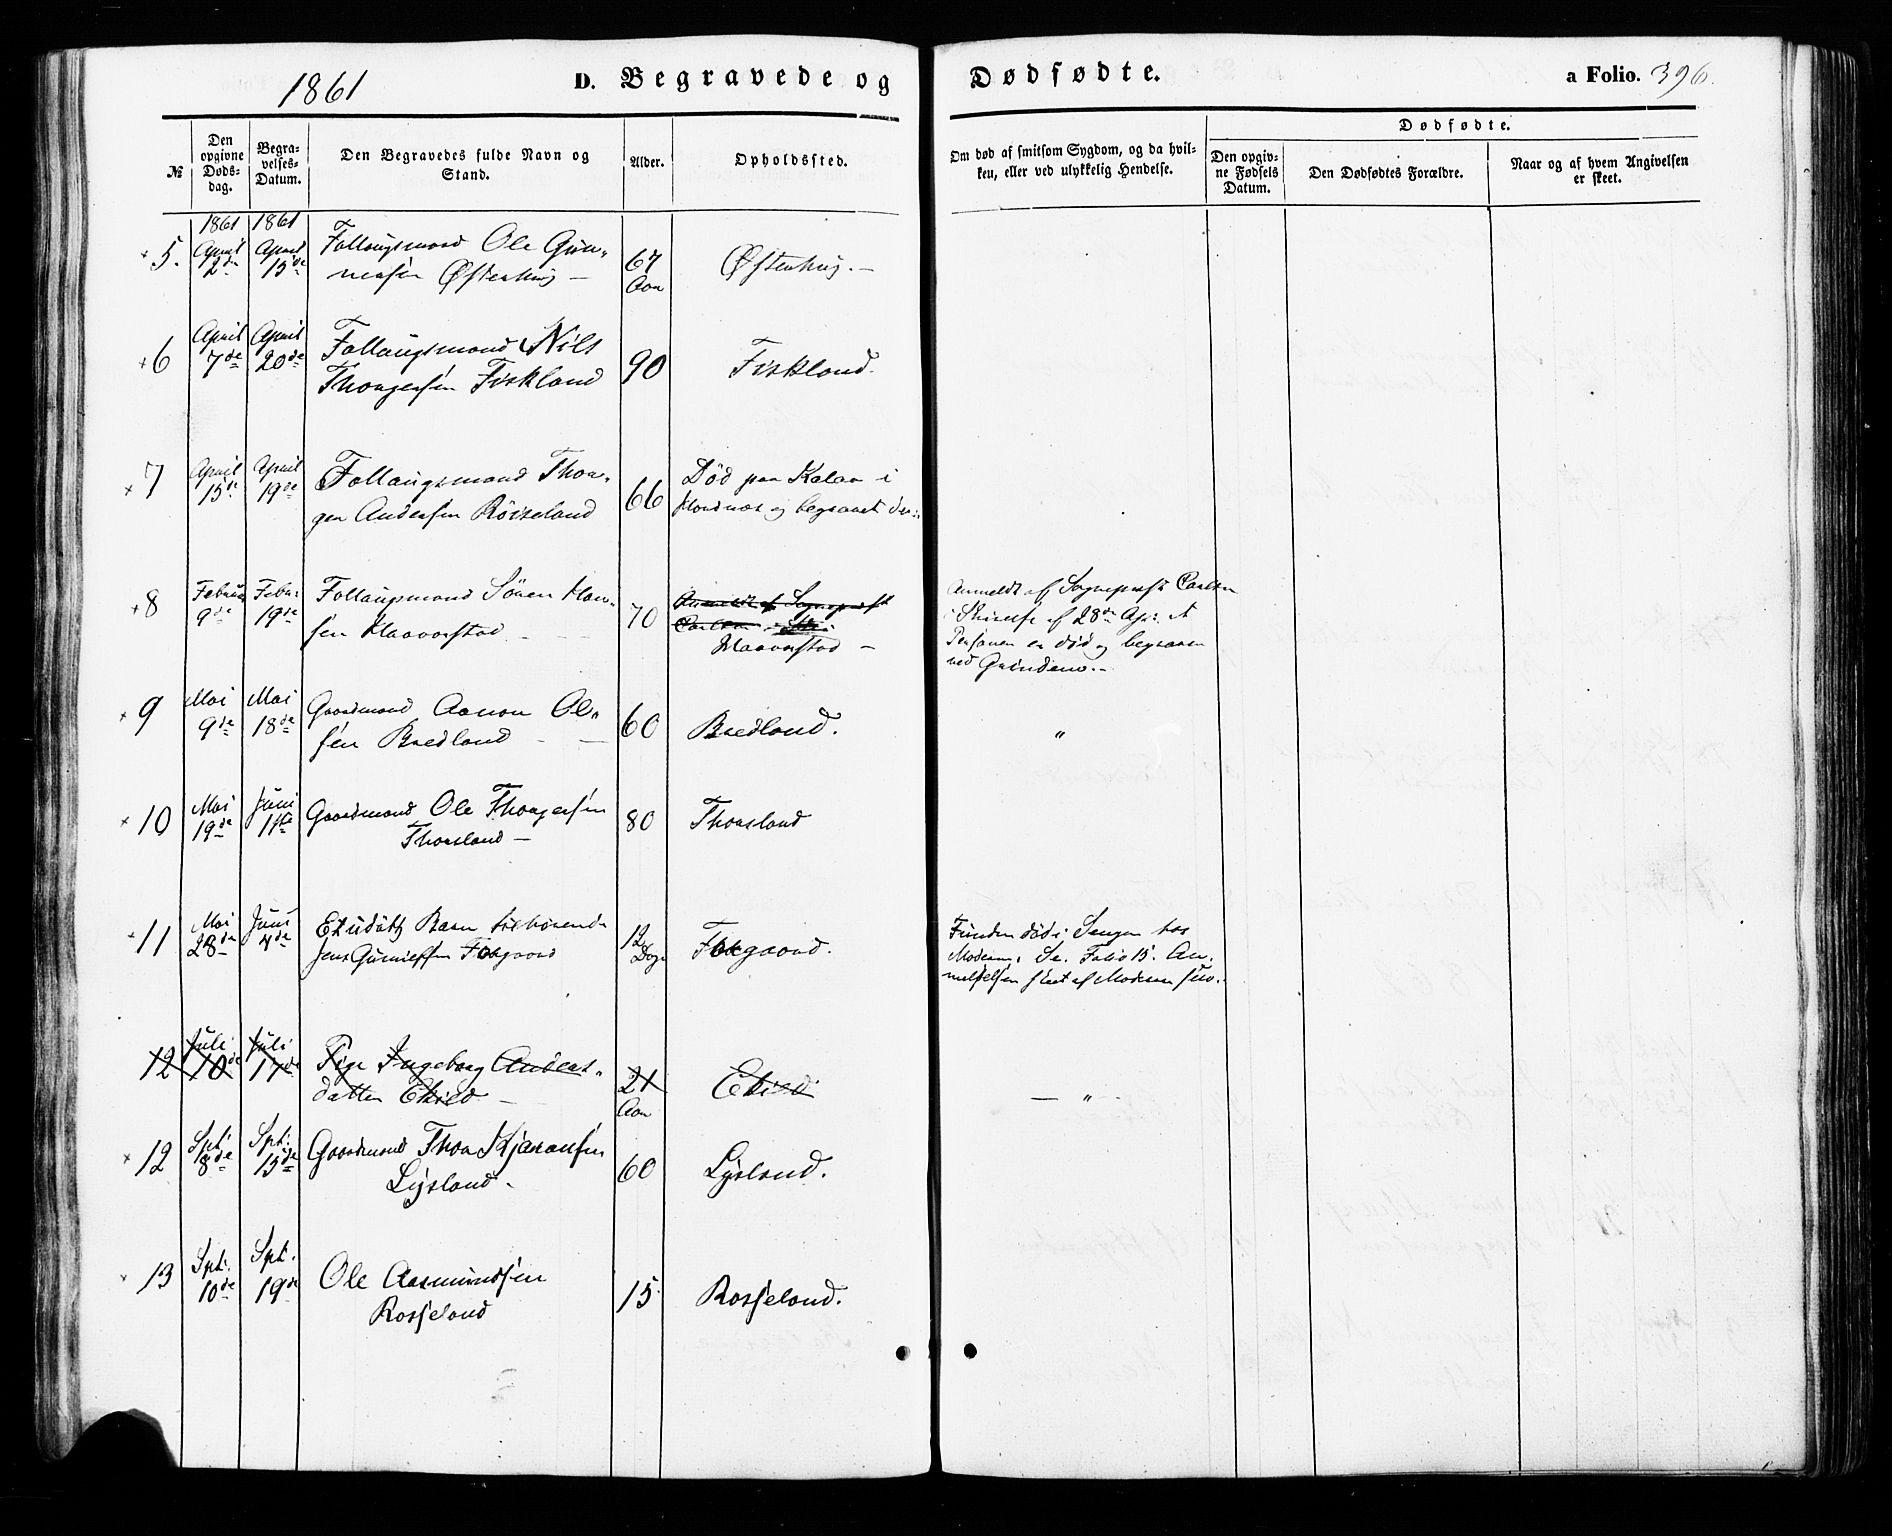 1861
D. Begravede og Dødfødte.
a Folio. 396.
№
Den opgivne Døds-dag.
Begra-velses-Datum.
Den Begravedes fulde Navn og Stand.
Alder.
Opholdssted.
Om død af smitsom Sygdom, og da hvil-
ken, eller ved ulykkelig Hendelse.
Dødfødte.
Den opgiv-ne Fødsels Datum.
Den Dødfødtes Forældre.
Naar og af hvem Angivelsen er skeet.
1861 1861
5. April 2de April 15de Follaugsmand Ole Gun-
nersen Øftenhug — 67 Aar Øftenhug. —
6 April 7de April 20de Follaugsmand Nils
Thorgersen Fiskland 90 Fiskland.
7 April 15de April 19de Follaugsmand Thor-
ger Andersen Röiseland 66 Død paa Kalar i
og begravet der.
8 Februar 9de Febr. 19de Follaugsmand Sören Han-
sen Haaverstad 70 Anmeldt af Sognepræst
Carlsen i
Haaverstad —
Anmeldt af Sognepræst Carlsen
i Skrivelse af 28de Apr: at
Personen er død og begraven
ved Grindem. -
9 Mai 9de Mai 18de Gaardmand Aanon Ol-
sen Bredland — 60 Bredland. "
10 Mai 19de Juni 1ste Gaardmand Ole Thorgersen
Thorsland — 80 Thorsland
11 Mai 28de Juni 4de Et udöbt Barn tilhörende
Jens Gunielsen 12 Dage
Funden død i Sengen hos
Moderen. Se. Folio 15. An-
meldelsen skeet af Moderen
12 Juli 10de Juli 17de Pige Ingeborg Anders-
datter Ekred — 21 Aar Ekred — " -
12 Spt. 8de Spt: 15de Gaardmand Thor Kjaransen
Lysland - 60 Lysland.
13 Spt. 10de Spt. 19de Ole Aasmundsen
Rosseland 15 Rosseland.